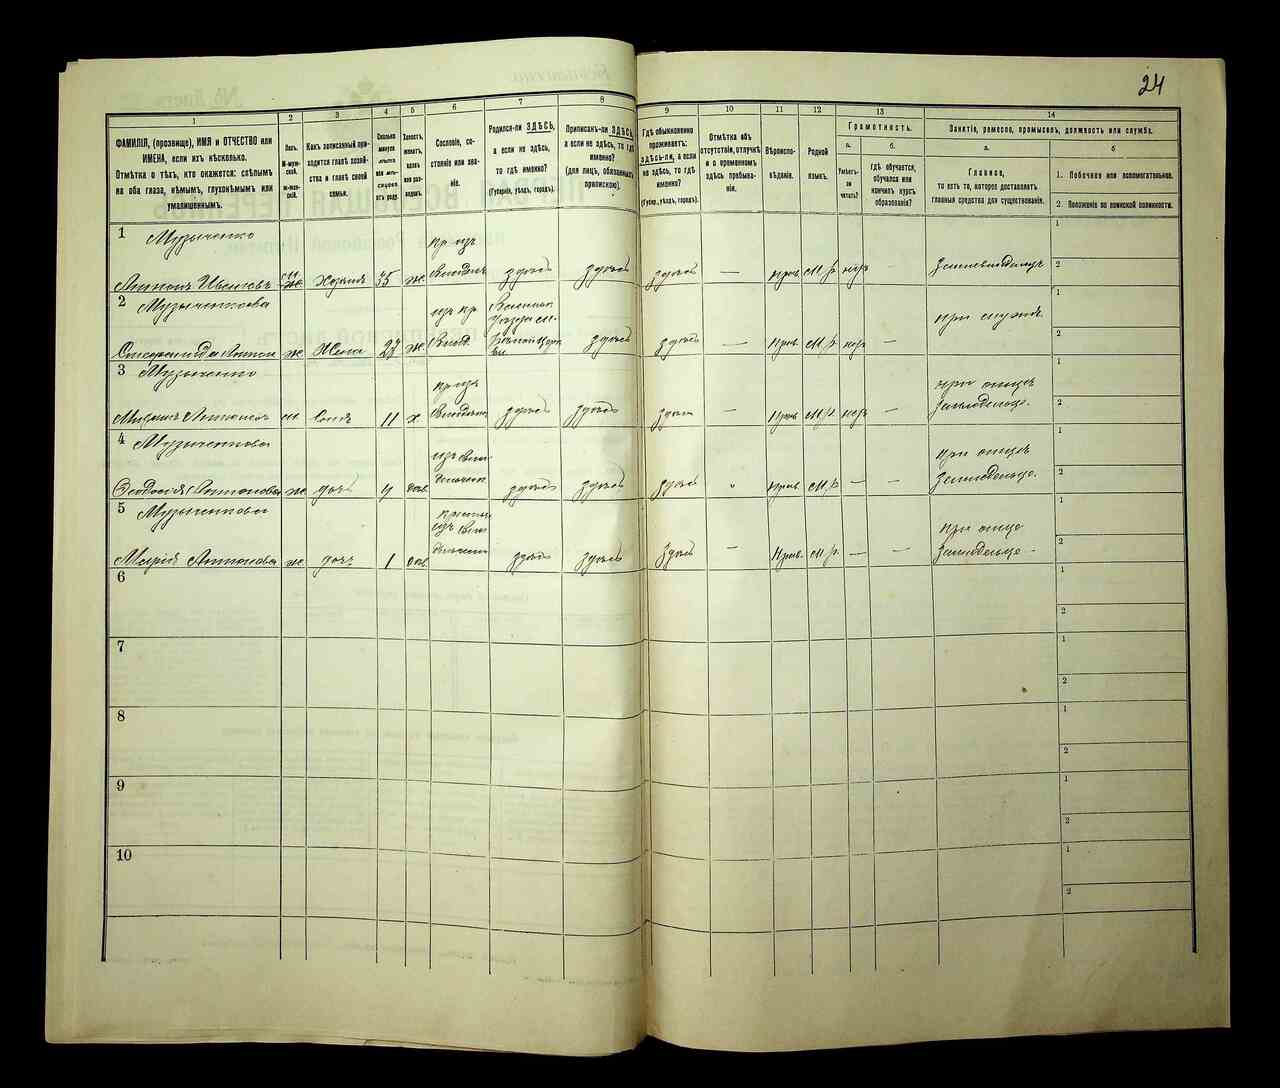 24
1
2
3
4
5
6
7
8
9
10
11
12
13
14
ФАМИЛІЯ, (прозвище), ИМЯ и ОТЧЕСТВО или
ИМЕНА, если ихъ нѣсколько.
Отмѣтка о тѣхъ, кто окажется: слѣпымъ
на оба глаза, нѣмымъ, глухонѣмымъ или
умалишеннымъ.
Полъ
М-муж-
ской.
Ж-жен-
скій.
Какъ записанный при-
ходится главѣ хозяй-
ства и главѣ своей
семьи.
Сколько
минуло
лѣтъ
или мѣ-
сяцевъ
отъ роду.
Холостъ,
женатъ,
вдовъ
или раз-
веденъ.
Сословіе, со-
стояніе или зва-
ніе.
Родился-ли ЗДѢСЬ,
а если не здѣсь,
то гдѣ именно?
(Губернія, уѣздъ, городъ).
Приписанъ-ли ЗДѢСЬ,
а если не здѣсь, то гдѣ
именно?
(для лицъ, обязанныхъ
припискою).
Гдѣ обыкновенно
проживаетъ:
ЗДѢСЬ-ли, а если
не здѣсь, то гдѣ
именно?
(Губер., уѣздъ, городъ).
Отмѣтка объ
отсутствіи, отлучкѣ
и о временномъ
здѣсь пребыва-
ніи.
Вѣроиспо-
вѣданіе.
Родной
языкъ.
Грамотность.
а.
Умѣетъ-
ли
читать?
б.
гдѣ обучается,
обучался или
кончилъ курсъ
образованія?
Занятіе, ремесло, промыселъ, должность или служба.
а.
Главное,
то есть то, которое доставляетъ
главныя средства для существованія.
б
1. Побочное или вспомогательное.
2. Положеніе по воинской повинности.
1 Музыченко
Антонъ Ивановъ хозяинъ 35 ж. здѣсь здѣсь здѣсь — прав М.р. нѣтъ —
1
2
2 Музыченкова
ж. Жена 27 ж. здѣсь здѣсь — прав М.р. нѣтъ —
1
2
3 Музыченко
Антоновъ м. сынъ 11 х. здѣсь здѣсь здѣсь — прав М.р. нѣтъ — при отцѣ
1
2
4 Музыченкова
Ѳеодосія Антонова ж. дочь здѣсь здѣсь здѣсь прав М.р. — — при отцѣ
1
2
5 Музыченкова
Марія Антонова ж. дочь 1 здѣсь здѣсь здѣсь — прав. М.р. — — при отцѣ
1
2
6
2
7
1
2
8
1
2
9
1
2
10
1
2